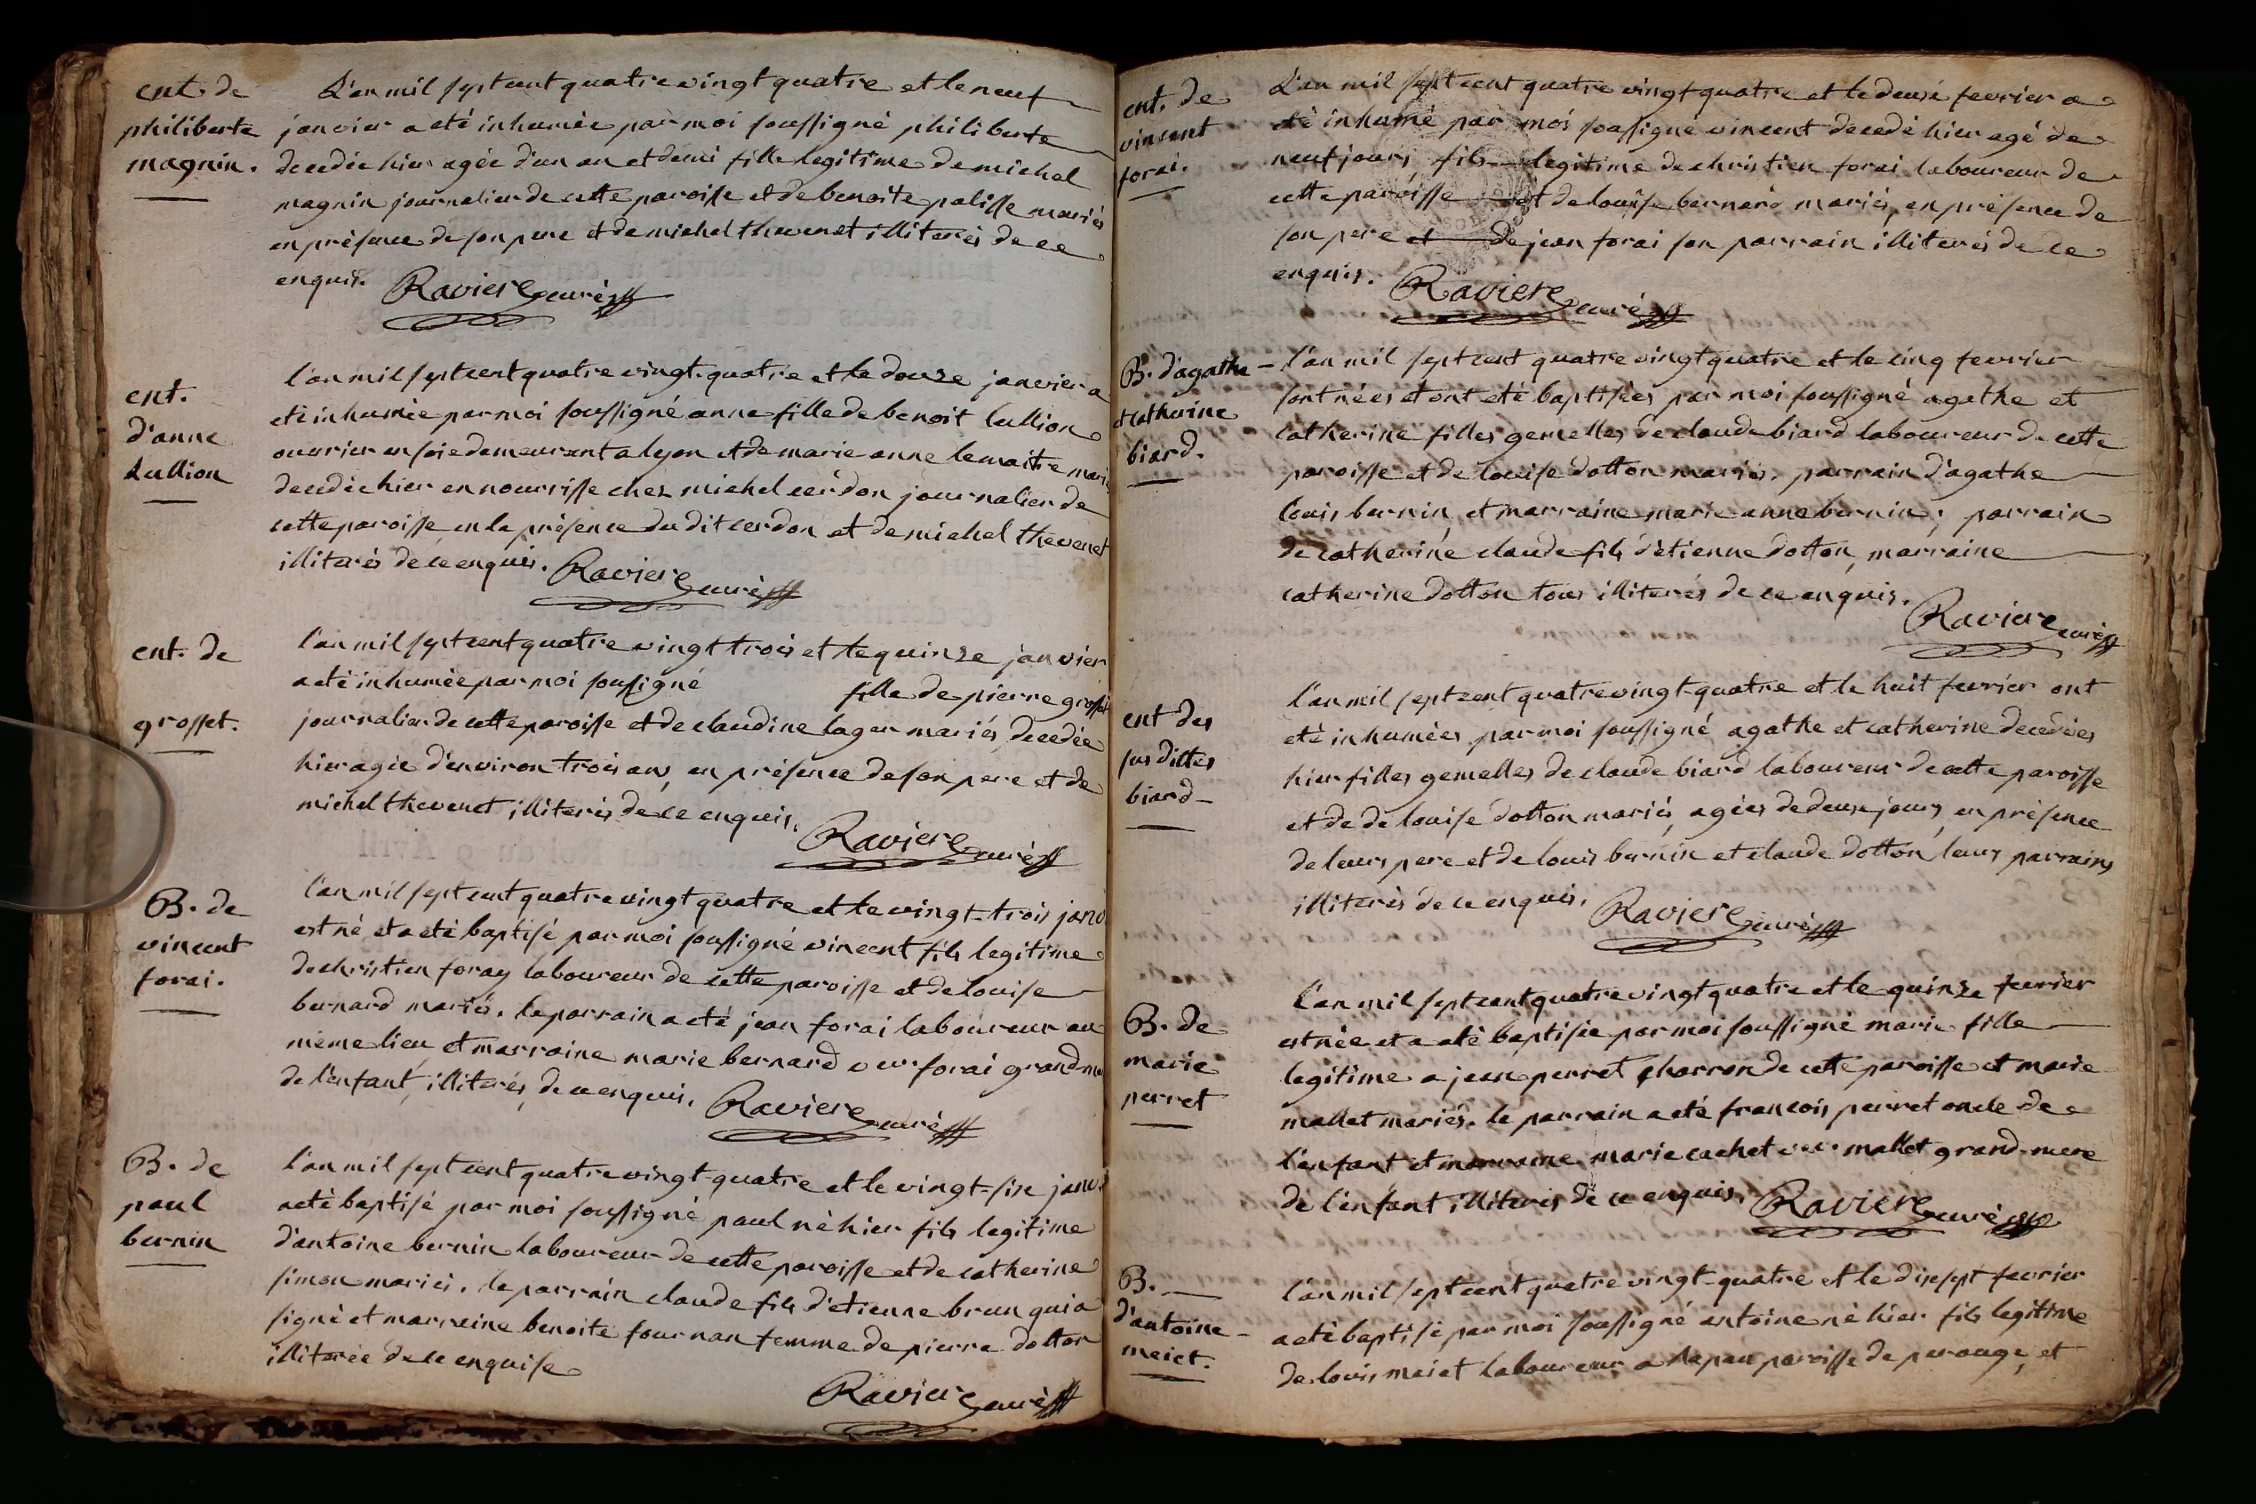 ent. de
philiberte
magnin.
L'an mil sept cent quatre vingt quatre et le neuf
janvier a eté inhumée par moi soussigné philiberte
decedée hier agée d'un an et demi fille legitime de michel
magnin journalier de cette paroisse et de benoite palisse mariés
en présence de son pere et de michel thevenet illiterés de ce
enquis. Raviere curé
ent.
d'anne
Lullion
l'an mil sept cent quatre vingt-quatre et le douze janvier a
eté inhumée par moi soussigné anne fille de benoit lullion
ouvrier en soie demeurant a lyon et de marie anne lemaitre mariés
decedée hier en nourrisse chez michel cerdon journalier de
cette paroisse en la présence du dit cerdon et de michel thevenet
illiterés de ce enquis. Raviere curé
ent. de
grosset.
l'an mil sept cent quatre vingt trois et le quinze janvier
a eté inhumée par moi soussigné fille de pierre grosset
journalier de cette paroisse et de claudine lager mariés decedée
hier agée d'environ trois ans, en présence de son pere et de
michel thevenet illiterés de ce enquis. Raviere curé
B. de
vincent
forai.
l'an mil sept cent quatre vingt quatre et le vingt-trois janv
est né et a eté baptisé par moi soussigné vincent fils legitime
de christien foray laboureur de cette paroisse et de louise
bernard mariés. le parrain a eté jean forai laboureur au
même lieu et marraine marie bernard veve forai grand me
de l'enfant, illiterés, de ce enquis. Raviere curé
B. de
paul
bernin
l'an mil sept cent quatre vingt-quatre et le vingt-six janv
a eté baptisé par moi soussigné paul né hier fils legitime
d'antoine bernin laboureur de cette paroisse et de catherine
simon mariés. le parrain claude fils d'etienne brun qui a
signé et marreine benoite fournan femme de pierre dotton
illiterée de ce enquise
Raviere curé
ent. de
vincent
forai.
L'an mil sept cent quatre vingt quatre et le deux fevrier a
eté inhumé par moi soussigné vincent decedé hier agé de
neuf jours fils legitime de christien forai laboureur de
cette paroisse et de louise bernard mariés, en présence de
son pere et de jean forai son parrain illiterés de ce
enquis. Raviere curé
B. d'agathe
et catherine
biard.
l'an mil sept cent quatre vingt quatre et le cinq fevrier
sont nées et ont eté baptisées par moi soussigné agathe et
catherine filles gemelles de claude biard laboureur de cette
paroisse et de louise dotton mariés, parrain d'agathe
louis bernin, et marraine marie anne bernin; parrain
de catherine claude fils d'etienne dotton, marraine
catherine dotton tous illiterés de ce enquis.
Raviere curé
ent des
susdittes
biard
l'an mil sept cent quatre vingt-quatre et le huit fevrier ont
eté inhumées par moi soussigné agathe et catherine decedées
hier filles gemelles de claude biard laboureur de cette paroisse
et de de louise dotton mariés, agées de deux jours, en présence
de leurs pere et de louis bernin et claude dotton, leurs parrains
illiterés de ce enquis. Raviere curé
B. de
marie
perret
l'an mil sept cent quatre vingt quatre et le quinze fevrier
est née et a eté baptisée par moi soussigné marie fille
legitime a jean perret charron de cette paroisse et marie
mallet mariés. le parrain a eté francois perret oncle de
l'enfant et marraine marie cachet veve mallet grand-mere
de l'enfant illiterés de ce enquis. Raviere curé
B.
d'antoine
meiet.
l'an mil sept cent quatre vingt-quatre et le dix sept fevrier
a eté baptisé par moi soussigné antoine né hier fils legitime
de louis meiet laboureur a paroisse de perouge, et